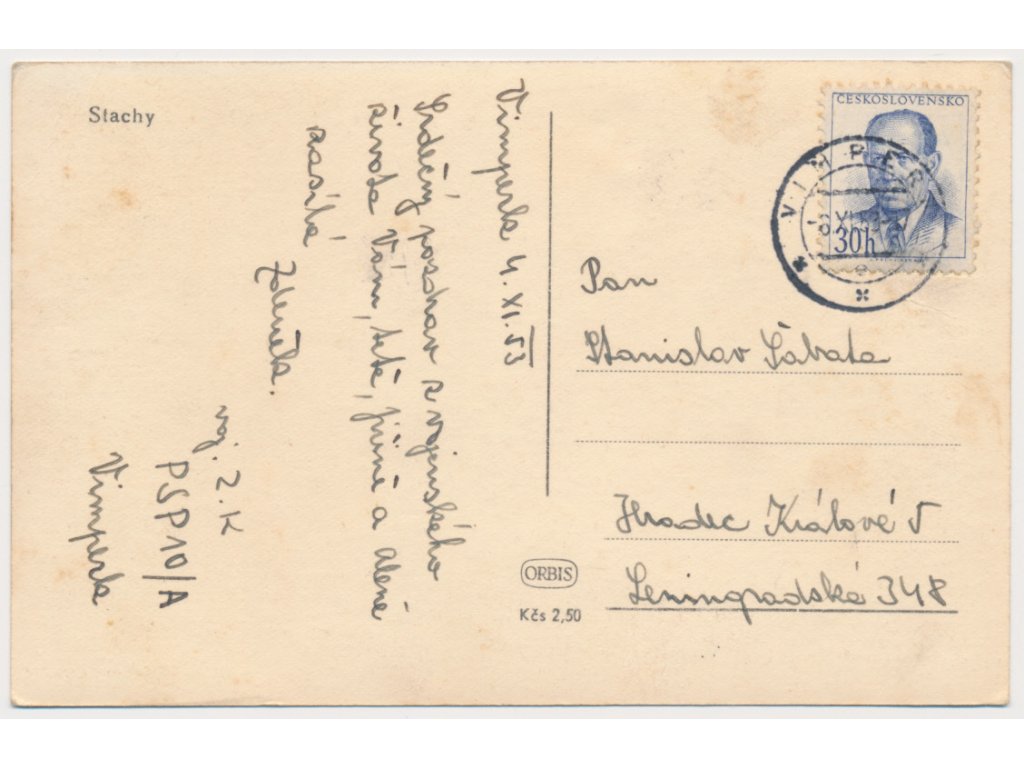 Stachy
Vimperk 4. XI. 53
Srdečný pozdrav z vojenského
života Vám, tetě, Jiřině a Aleně
zasílá
Zdeněk.
voj. Z. K
PSP 10/A
Vimperk
ČESKOSLOVENSKO
30h
VIMPERK
Pan
Stanislav Sábata
Hradec Králové V
Leningradská 348
ORBIS
Kčs 2,50